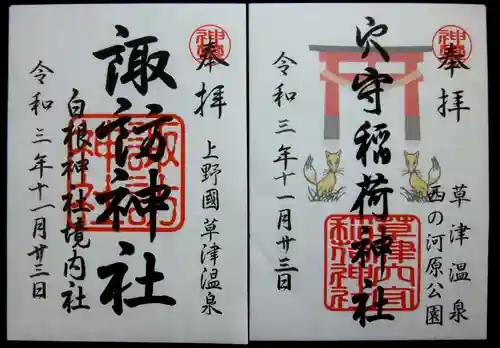 奉拝
上野國草津温泉
諏訪神社
白根神社境内社
令和三年十一月廿三日
諏訪神社
奉拝
草津温泉
西の河原公園
穴守稲荷神社
令和三年十一月廿三日
草津穴守稲荷神社